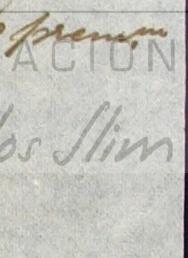 premium
ACION
los Slim